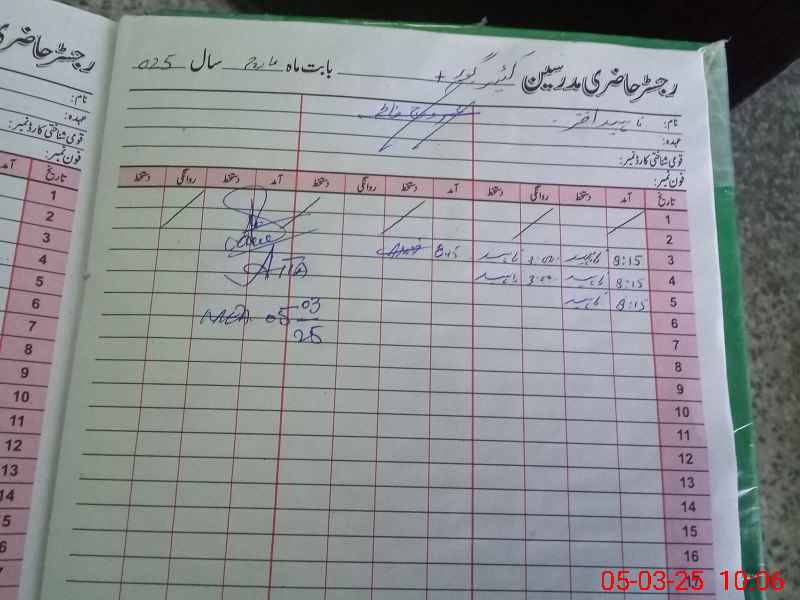 رجسٹر حاضری مدرسین کئیر گور + بابت ماہ مارچ سال 025
نام: ناہید اختر
عہدہ:
قومی شناختی کارڈ نمبر:
فون نمبر:
تاریخ آمد دستخط روانگی دستخط آمد دستخط روانگی دستخط آمد دستخط روانگی دستخط
1
2
3 8:15 ناہید 3:00 ناہید 8:15
4 8:15 ناہید 3:00 ناہید
5 8:15 ناہید
6
7
8
9
10
11
12
13
14
15
16
17
MEA 05 03
25
رجسٹر حاضری
نام:
عہدہ:
قومی شناختی کارڈ نمبر:
فون نمبر:
تاریخ آمد
1
2
3
4
5
6
7
8
9
10
11
12
13
14
5
6
05-03-25 10:06